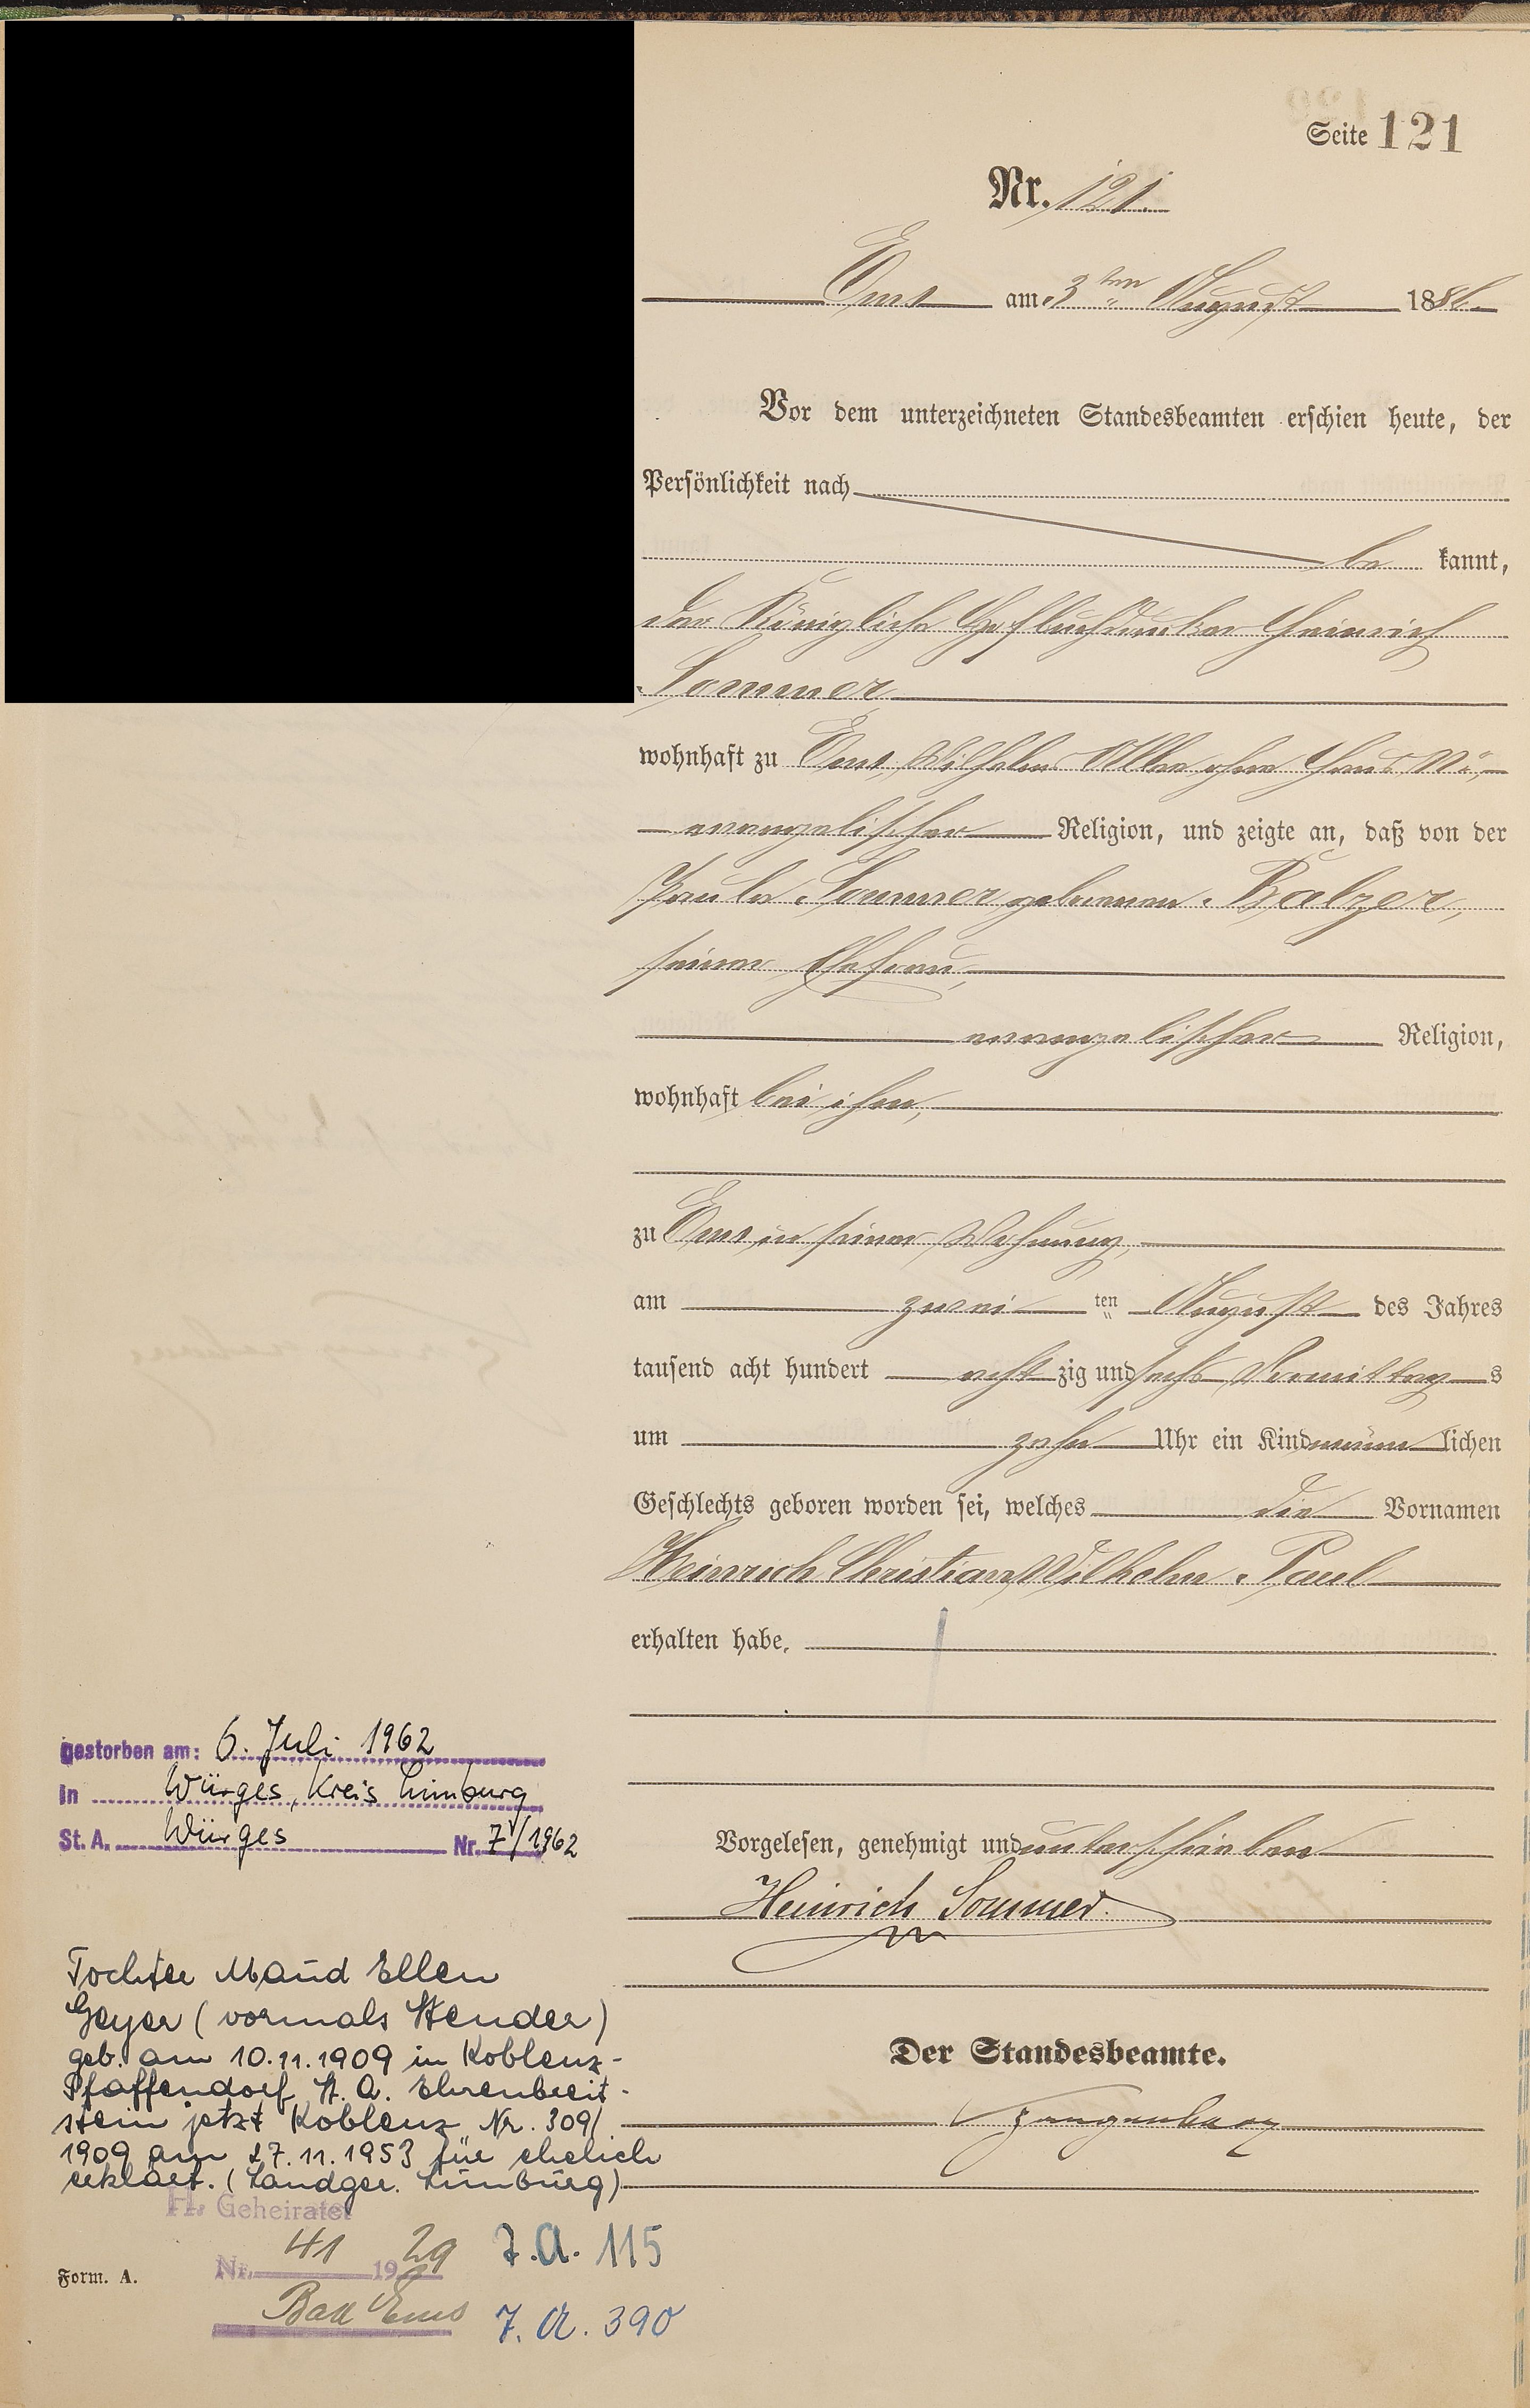 Seite 121
Nr. 121.
Ems am 3ten August 1886.
Vor dem unterzeichneten Standesbeamten erschien heute, der
Persönlichkeit nach
be kannt,
der Königliche Hofbuchdrucker Heinrich
Sommer
wohnhaft zu Ems, Wilhelms Allee ohne Haus No.,
evangelischer Religion, und zeigte an, daß von der
Paula Sommer geborenen Balzer,
seiner Ehefrau,
evangelischer Religion,
wohnhaft bei ihm,
zu Ems in seiner Wohnung,
am zwei ten August des Jahres
tausend acht hundert acht zig und sechs Vormittag s
um zehn Uhr ein Kind männ lichen
Geschlechts geboren worden sei, welches die Vornamen
Heinrich Christian Wilhelm Paul
erhalten habe.
Vorgelesen, genehmigt und unterschrieben
Heinrich Sommer.
Der Standesbeamte.
gestorben am: 6. Juli 1962
in Würges, Kreis Limburg
St. A. Würges Nr. 7/1962
Tochter Maud Ellen
Geyer (vormals Stender)
geb. am 10.11.1909 in Koblenz-
Pfaffendorf St. A. Ehrenbreit-
stein jetzt Koblenz Nr. 309/
1909 am 27.11.1953 für ehelich
erklärt. (Landger. Limburg)
H. Geheiratet
Nr. 41 1929
Bad Ems
J.A. 115
J.A. 390
Form. A.